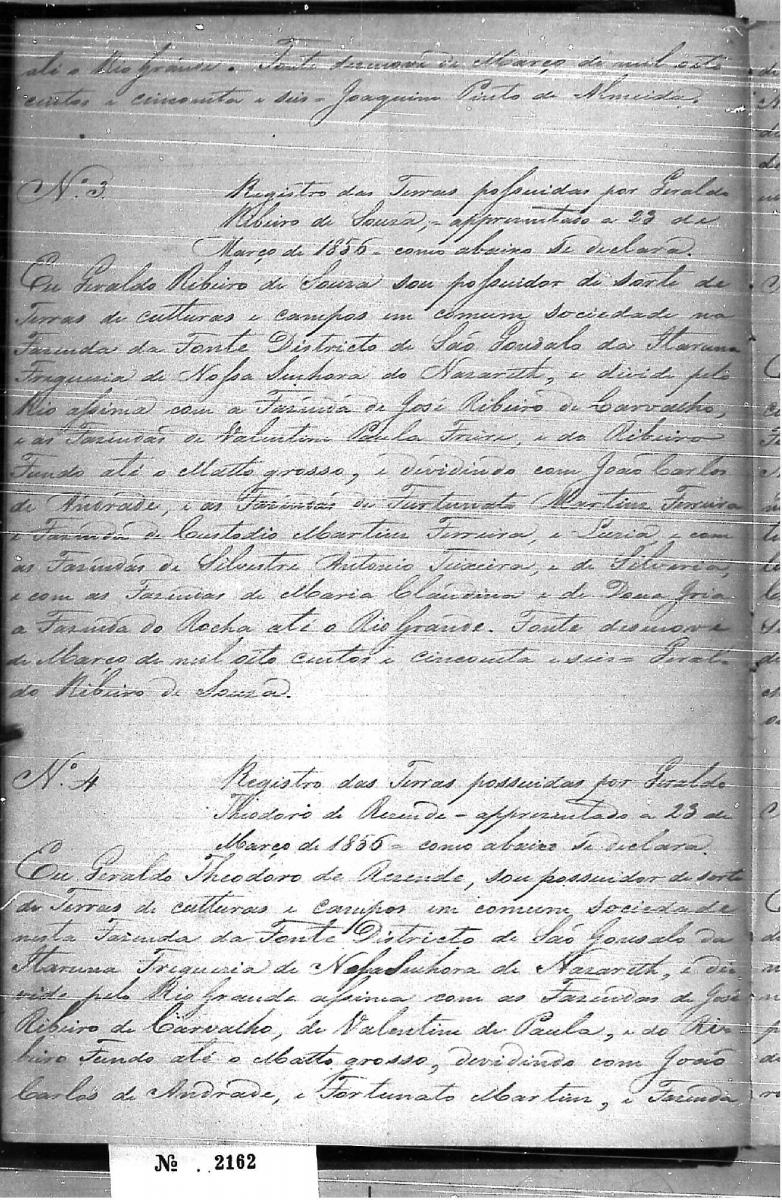 até o Rio Grande. Fonte desenove de Março de mil oito
centos e cincoenta e seis = Joaquim Pinto de Almeida.
N.º 3. Registro das Terras possuidas por Geraldo
Ribeiro de Souza, = appresentado a 23 de
Março de 1856 = como abaixo se declara.
Eu Geraldo Ribeiro de Souza sou possuidor de sorte de
Terras de culturas e campos em comum sociedade na
Fazenda da Fonte Districto de São Gonsalo da Ibaruna
Freguezia de Nossa Senhora do Nazareth, e divide pelo
Rio assima com a Fazenda de José Ribeiro de Carvalho,
e as Fazendas de Valentim Paula Freire, e do Ribeiro
Fundo até o Matto grosso, e dividindo com João Carlos
de Andrade, e as Fazendas de Furtunato Martins Ferreira
e Fazenda de Custodio Martins Ferreira, e Luzia, e com
as Fazendas de Silvestre Antonio Teixeira, e de Silveria,
e com as Fazendas de Maria Claudina e de Dona
a Fazenda do Rocha até o Rio Grande. Fonte desenove
de Março de mil oito centos e cincoenta e seis = Geral-
do Ribeiro de Souza.
N.º 4 Registro das Terras possuidas por Geraldo
Thiodoro de Rezende = appresentado a 23 de
Março de 1856 = como abaixo se declara.
Eu Geraldo Theodoro de Rezende, sou possuidor de sorte
de Terras de culturas e campos em comum sociedade
nesta Fazenda da Fonte Districto de São Gonsalo da
Ibaruna Freguezia de Nossa Senhora de Nazareth, e di-
vide pelo Rio Grande assima com as Fazendas de José
Ribeiro de Carvalho, de Valentim de Paula, e do Ri-
beiro Fundo até o Matto grosso, devidindo com João
Carlos de Andrade, e Fortunato Martins, e Fazenda
№ 2162